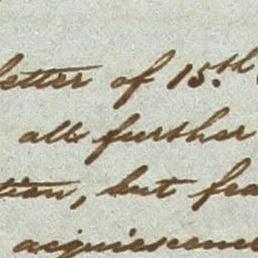 letter of 15.th
all further
tion, but fea
acquiescence